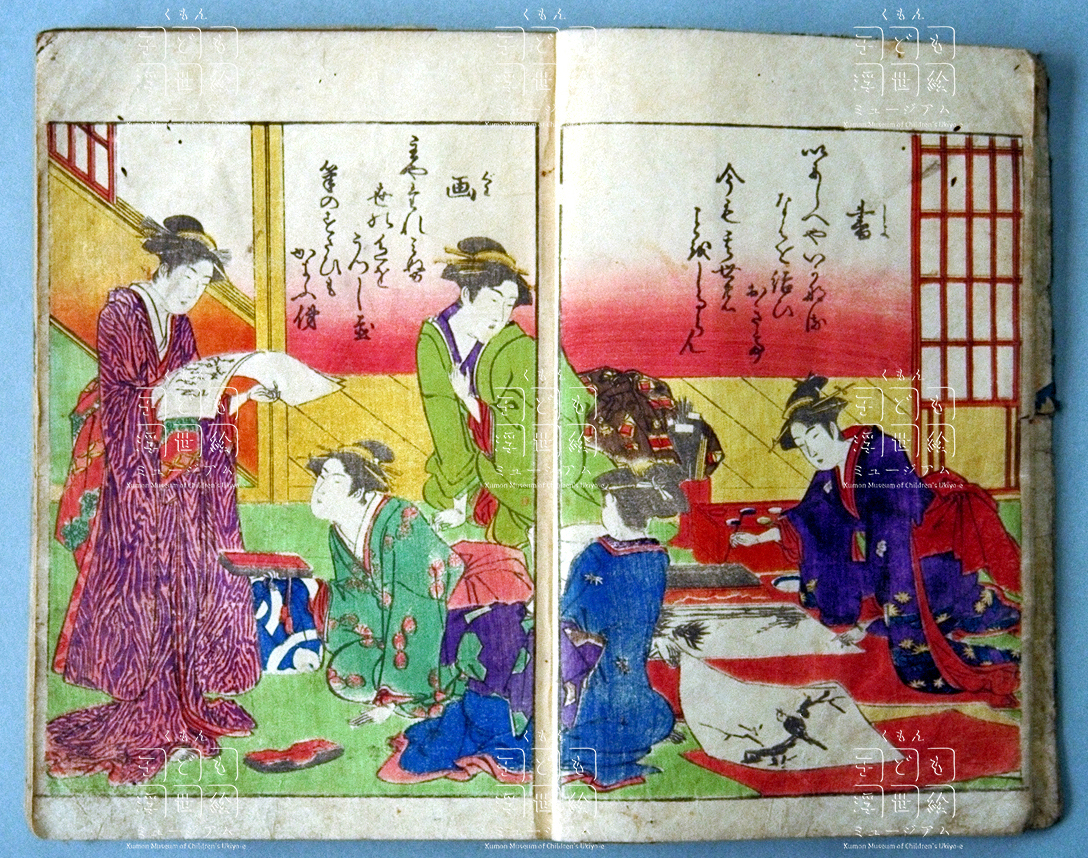 くもん
子ども
浮世絵
ミュージアム
Kumon Museum of Children's Ukiyo-e
くもん
子ども
浮世絵
ミュージアム
Kumon Museum of Children's Ukiyo-e
くもん
子ども
浮世絵
ミュージアム
Kumon Museum of Children's Ukiyo-e
書
しよ
以にしへやいかなる
なはを結ひ
おき
今も其世を
しるらん
画
主やたれミぬ
世の色を
うつし置
筆のすさひも
俤
くもん
子ども
浮世絵
ミュージアム
Kumon Museum of Children's Ukiyo-e
くもん
子ども
浮世絵
ミュージアム
Kumon Museum of Children's Ukiyo-e
くもん
子ども
浮世絵
ミュージアム
Kumon Museum of Children's Ukiyo-e
くもん
子ども
浮世絵
ミュージアム
Kumon Museum of Children's Ukiyo-e
くもん
子ども
浮世絵
ミュージアム
Kumon Museum of Children's Ukiyo-e
くもん
子ども
浮世絵
ミュージアム
Kumon Museum of Children's Ukiyo-e